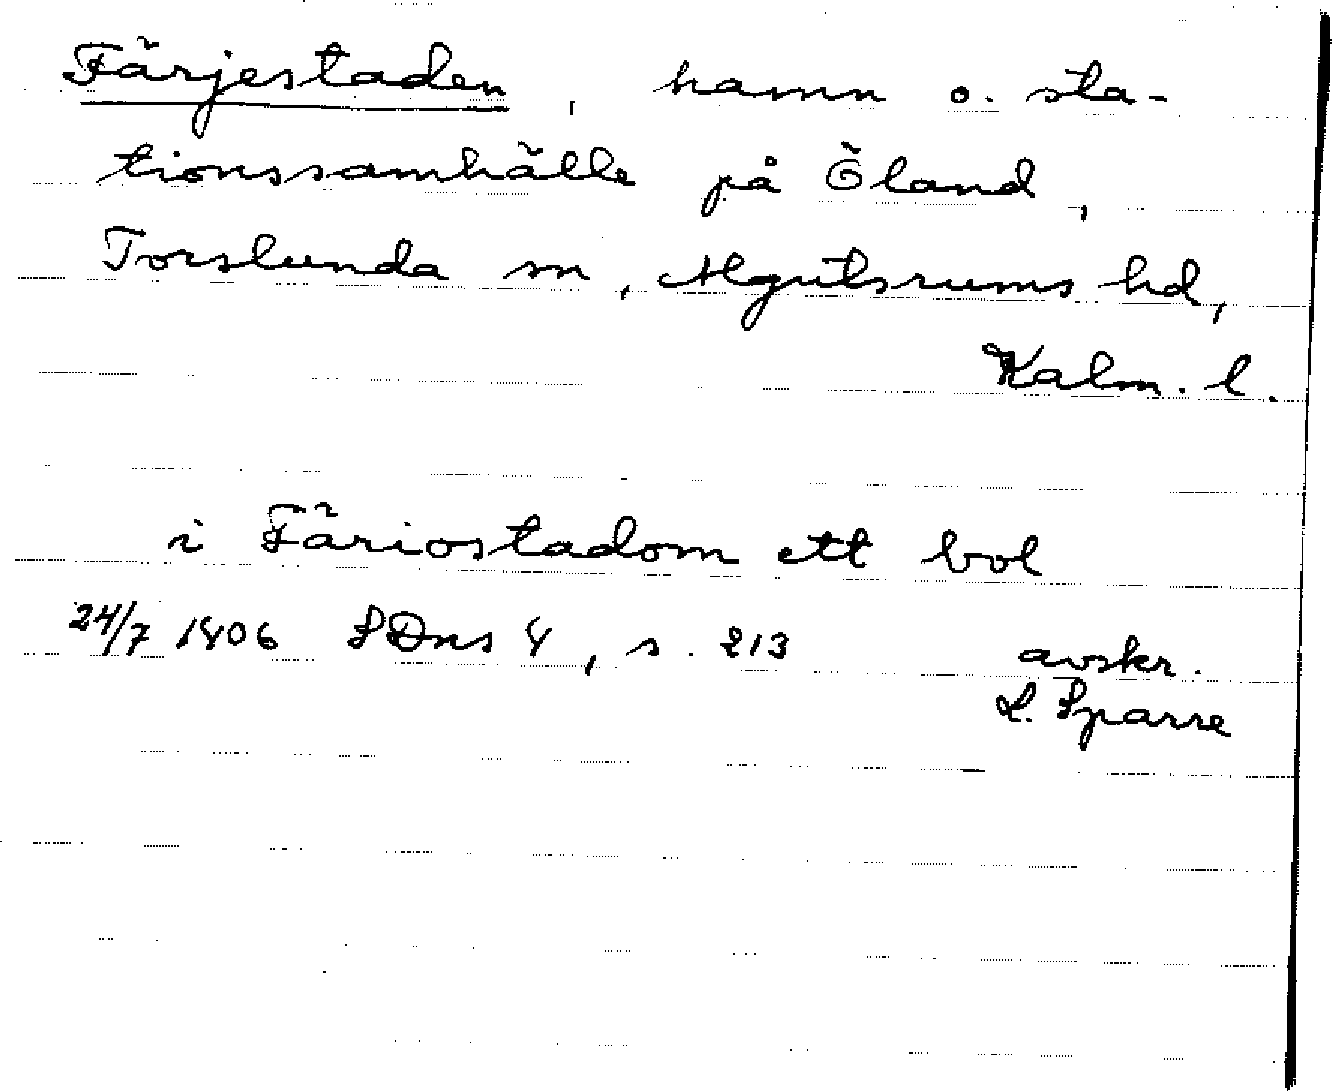 Färjestaden, hamn o. sta-
tionssamhälle på Öland,
Torslunda sn, Algutsrums hd,
Kalm. l.
i Färiostadom ett bol
24/7 1406 SDns 1, s. 213
avskr.
L. Sparre